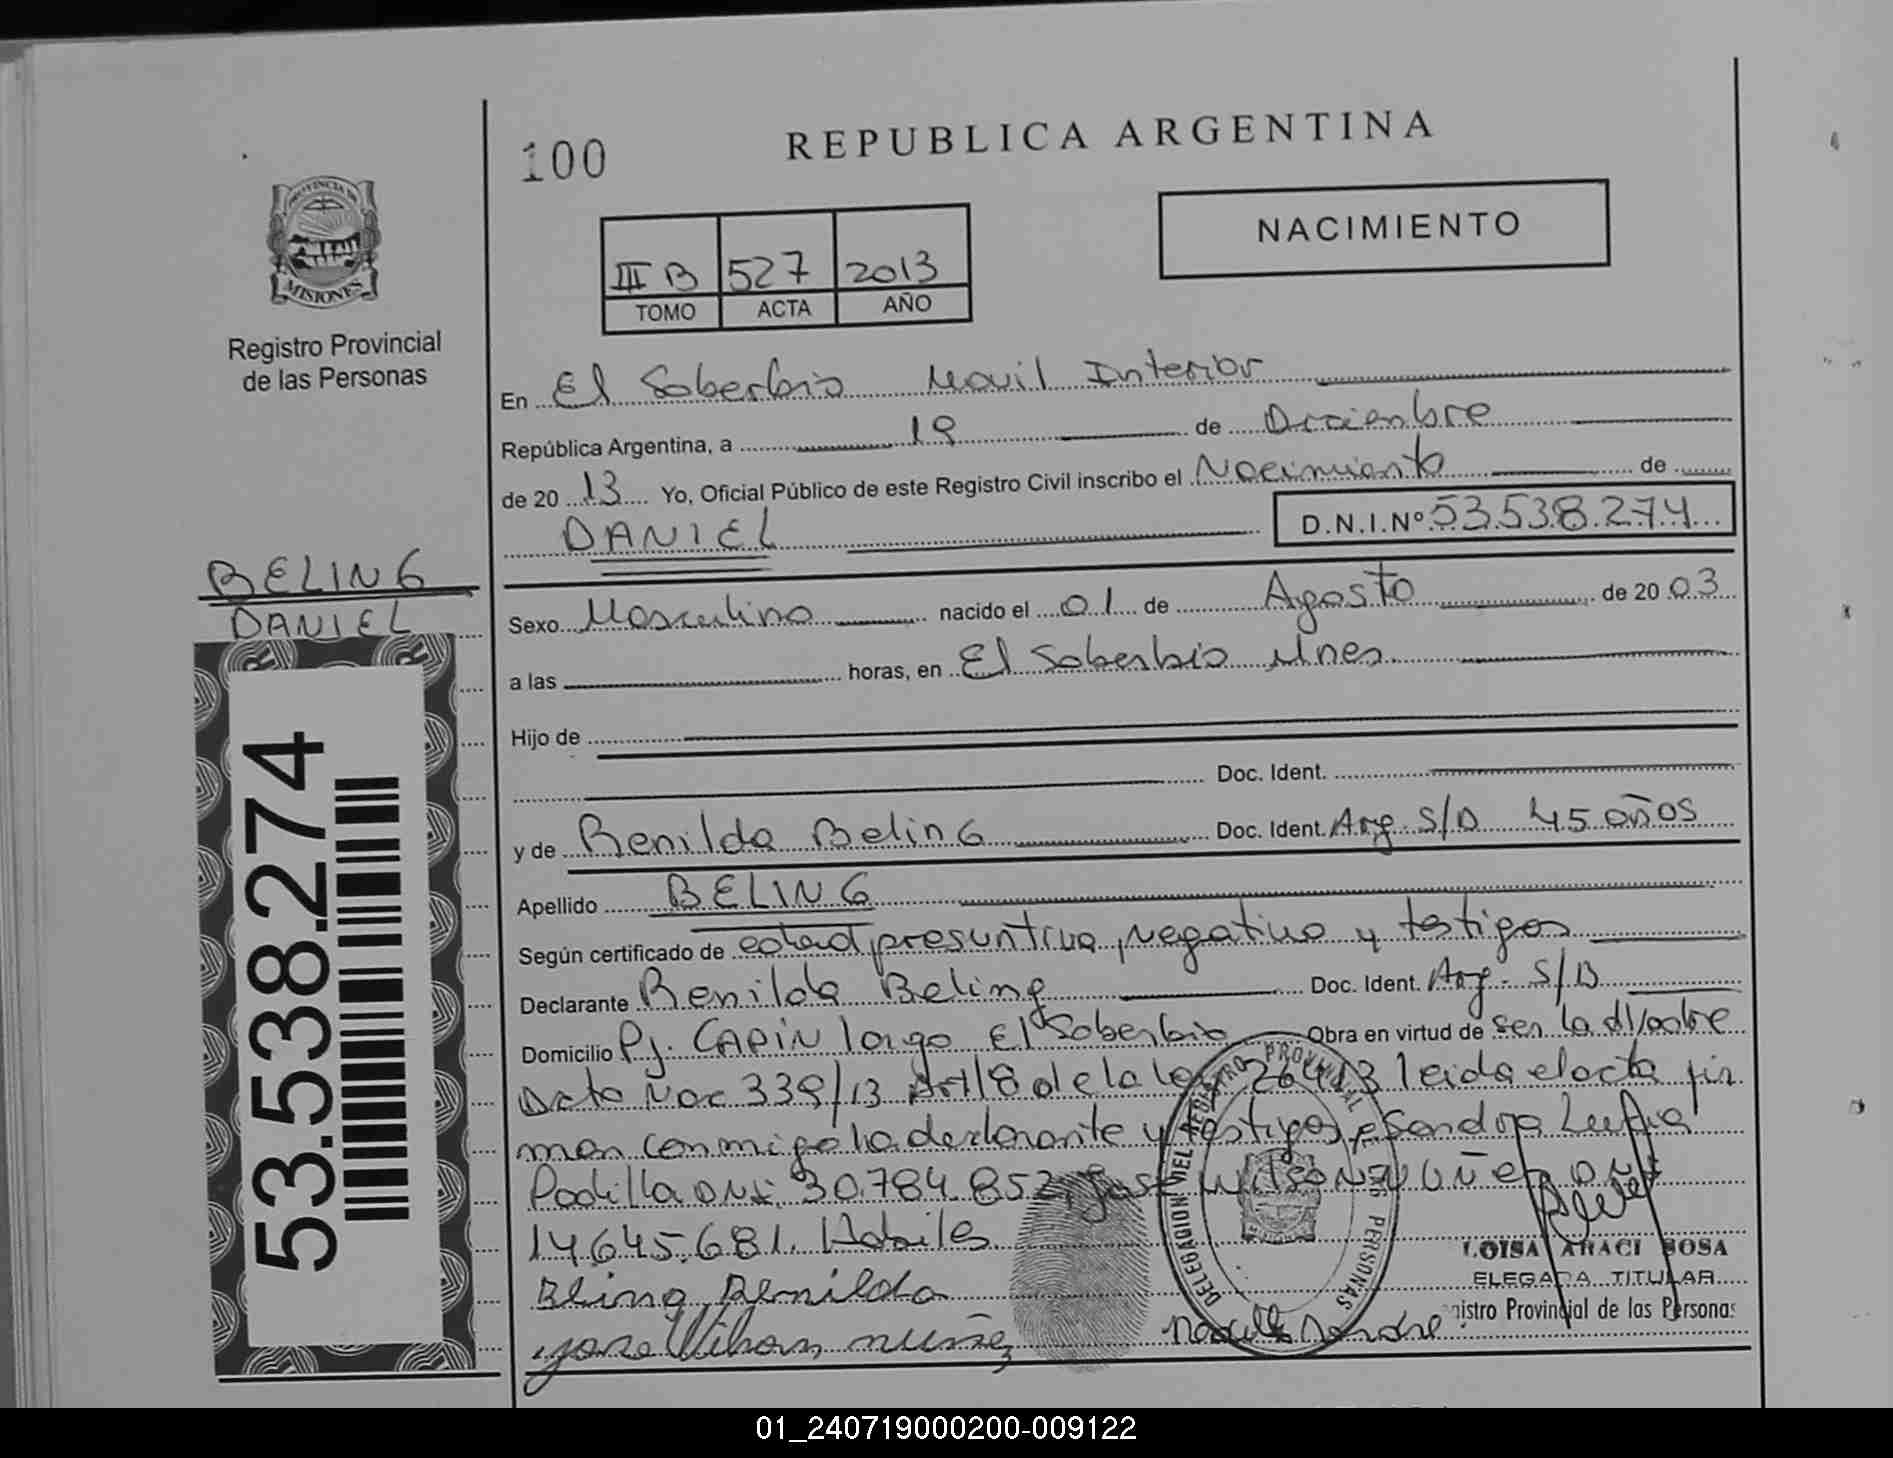 100
REPUBLICA ARGENTINA
PROVINCIA DE
MISIONES
Registro Provincial
de las Personas
NACIMIENTO
III B 527 2013
TOMO ACTA AÑO
En El Soberbio Movil Interior
República Argentina, a 19 de Diciembre
de 20 13 Yo, Oficial Público de este Registro Civil inscribo el Nacimiento de
DANIEL D.N.I.Nº 53.538.274
BELING
DANIEL
53.538.274
Sexo Masculino nacido el 01 de Agosto de 20 03
a las horas, en El Soberbio Mnes
Hijo de
Doc. Ident.
y de Benilda Beling Doc. Ident. Arg. S/D 45 años
Apellido BELING
Según certificado de edad presuntiva, negativo y testigos
Declarante Benilda Beling Doc. Ident. Arg. S/D
Domicilio Pj. CAPIN largo El Soberbio Obra en virtud de ser la M/adre
Dcto Nac 339/13 Art 8 de la ley 26413 leida el acta fir
man conmigo la declarante y testigos Sandra
Padilla DNI. 30.784.852, José Wilson Nuñez DNI
14.645.681. Habiles
Bling Benilda
jose Wilson nuñez
DELEGACION DEL REGISTRO PROVINCIAL DE LAS PERSONAS
LOISA ARACI SOSA
ELEGADA TITULAR
gistro Provincial de las Personas
01_240719000200-009122